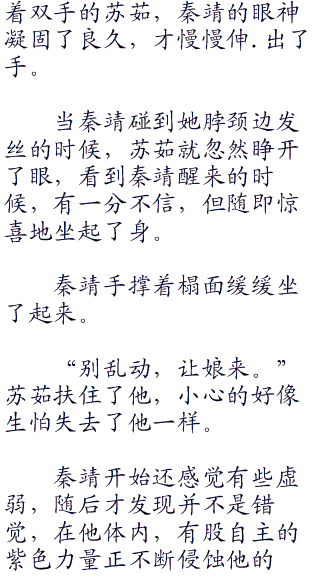 着双手的苏茹，秦靖的眼神
凝固了良久，才慢慢伸.出了
手。
当秦靖碰到她脖颈边发
丝的时候，苏茹就忽然睁开
了眼，看到秦靖醒来的时
候，有一分不信，但随即惊
喜地坐起了身。
秦靖手撑着榻面缓缓坐
了起来。
“别乱动，让娘来。”
苏茹扶住了他，小心的好像
生怕失去了他一样。
秦靖开始还感觉有些虚
弱，随后才发现并不是错
觉，在他体内，有股自主的
紫色力量正不断侵蚀他的